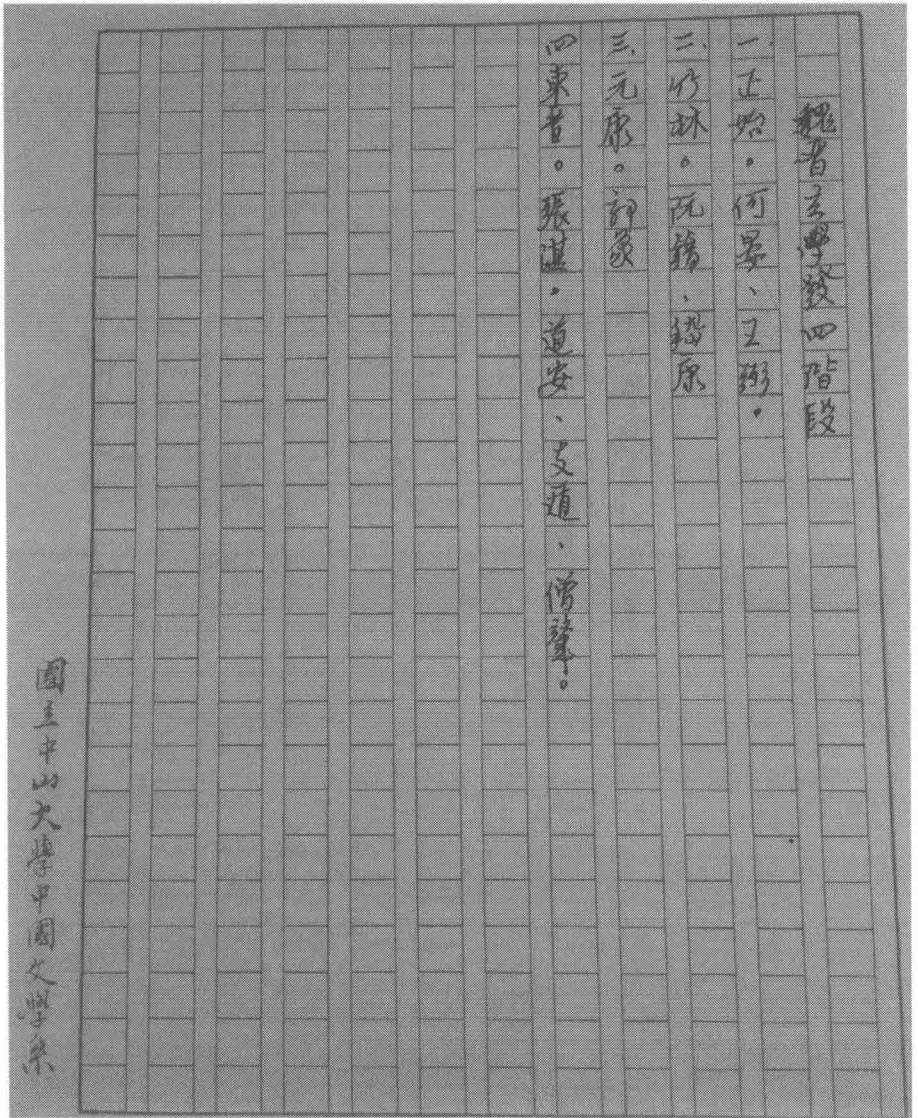 魏晉玄學發四階段
一、正始。何晏、王弼。
二、竹林。阮籍、嵇康
三、元康。郭象
四東晉。張湛。道安、支遁、僧肇。
國立中山大學中國文學系